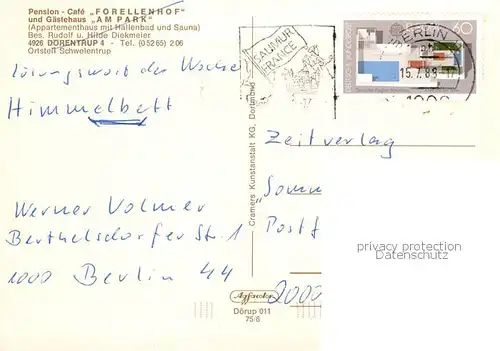 Pension - Café „FORELLENHOF"
und Gästehaus „AM PARK"
(Appartementhaus mit Hallenbad und Sauna)
Bes. Rudolf u. Hilde Diekmeier
4926 DÖRENTRUP 4 - Tel. (05265) 2 06
Ortsteil Schwelentrup
Lösungswort der Woche:
Himmelbett
Werner Volmer
Berthelsdorfer Str. 1
1000 Berlin 44
Cramers Kunstanstalt KG, Dortmund
Agfacolor
Dörup 011
75/8
SAUMUR
FRANCE
BERLIN
15.7.88
1000
60
Zeitverlag
"Somm
Postf
2000
privacy protection
Datenschutz